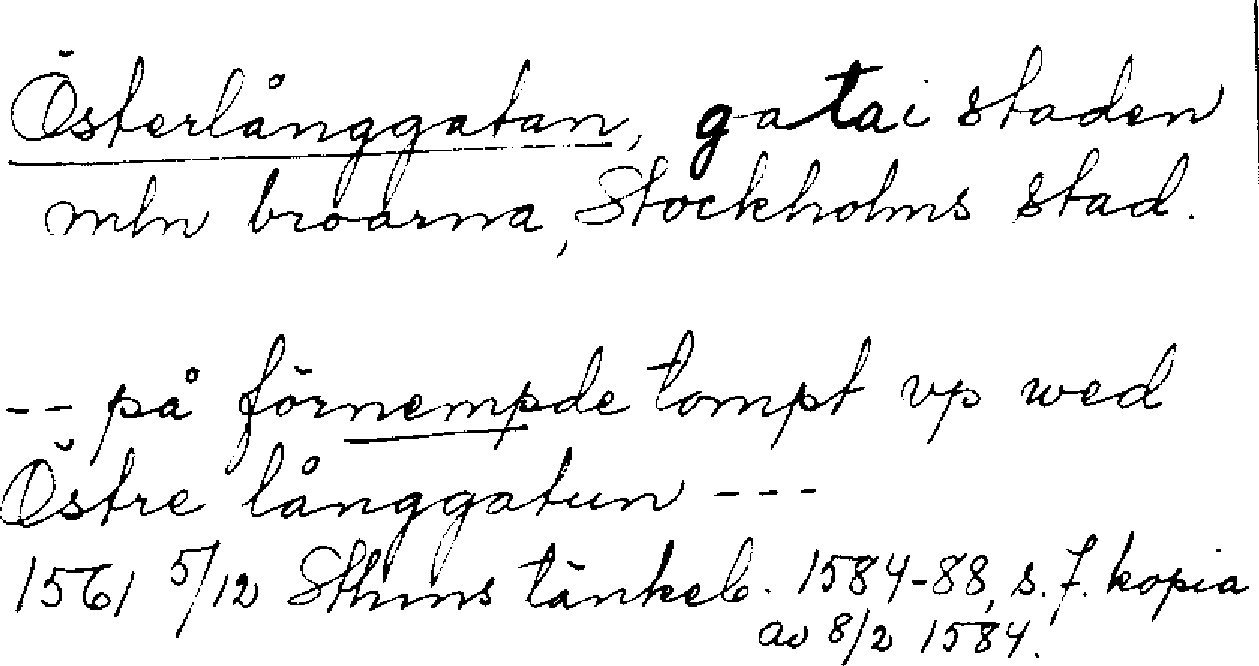 Österlånggatan, gata i staden
mln broarna, Stockholms stad.
-- på förnempde tompt vp wed
Östre långgatun ---
1561 5/12 Sthms tänkeb. 1584-88, s. 7. kopia
av 8/2 1584.